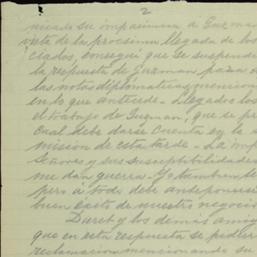 2
nicado su impaciencia a Guzman
vista de la procsima llegada de los
ciados, consegui que se suspendie
la respuesta de Guzman para
las notas diplomáticas, mencion
en lo que antecede. Llegados los
el trabajo de Guzman, que se pr
cual debe darse cuenta en la
mision de esta tarde. La imp
Señores y sus susceptibilidades
me dan guerra. Y etumbante
pero a todo debe anteponerse
buen éxito de nuestro negocio
Duret y los demás amig
que en esta respuesta se pedir
reclamacion mencionando su